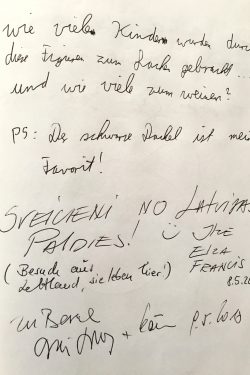 wie viele Kinder wurden durch
diese Figuren zum Lachen gebracht...
und wie viele zum weinen?
PS: Der schwarze Dackel ist mein
Favorit!
SVEICIENI NO LATVIJAS
PALDIES! ☺
ELZA
FRANCIS
(Besuch aus
Lettland, sie leben hier!)
8.5.20